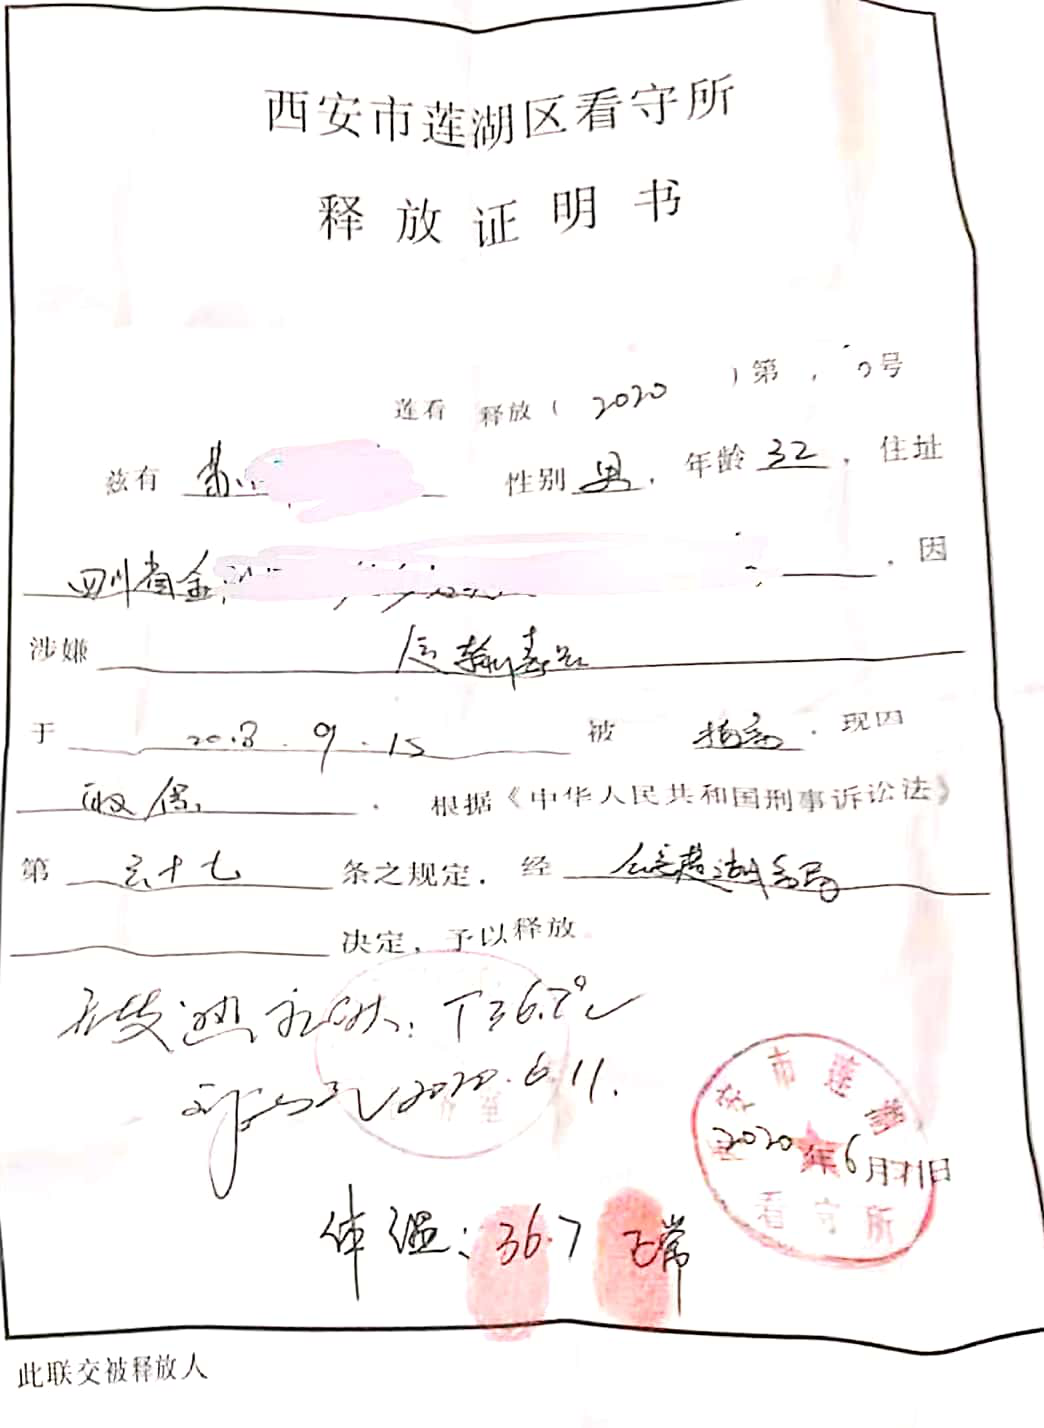 西安市莲湖区看守所
释放证明书
莲看 释放（2020）第 号
兹有 性别 男，年龄 32，住址
四川省金 ，因
涉嫌 运输毒品
于 9.15 被 ，现因
取保，根据《中华人民共和国刑事诉讼法》
第 六十七 条之规定，经 莲湖分局
决定，予以释放
2020.6.11.
市莲
2020年6月11日
看守所
体温：36.7 正常
此联交被释放人